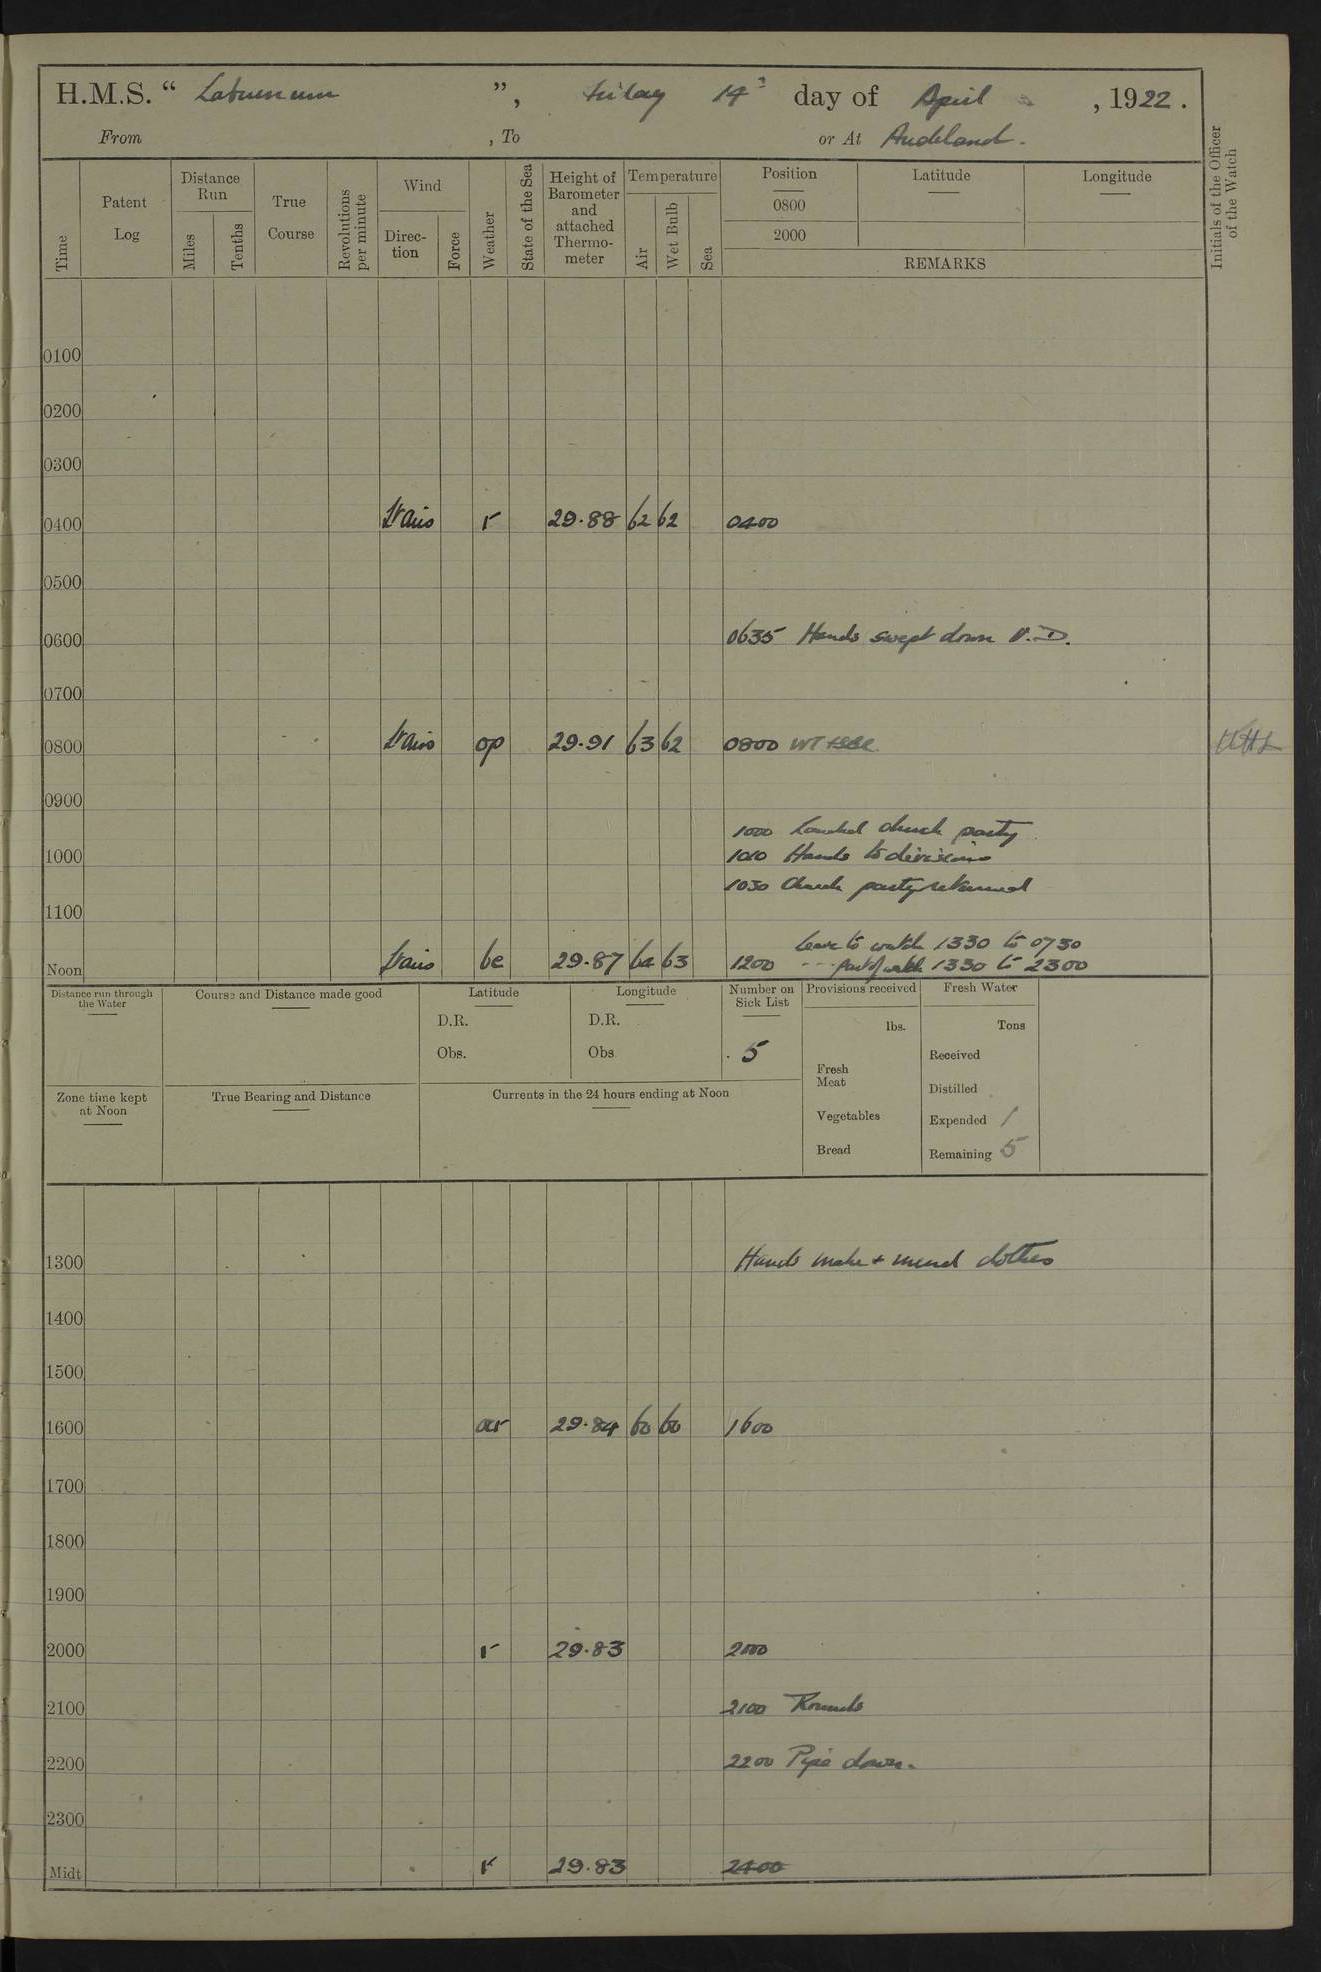 H.M.S. “ Laburnum ”, Friday 14th day of April , 1922.
From , To or At Auckland.
Time
Patent Log
Distance Run
Miles
Tenths
True Course
Revolutions per minute
Wind
Direction
Force
Weather
State of the Sea
Height of Barometer and attached Thermometer
Temperature
Air
Wet Bulb
Sea
Position
0800
2000
Latitude
Longitude
REMARKS
Initials of the Officer of the Watch
0100
0200
0300
0400 r 29.88 62 62 0400
0500
0600 0635 Hands swept down U.D.
0700
0800 op 29.91 63 62 0800
0900
1000 Landed church party
1000 1010 Hands to divisions
1030 Church party returned
1100
Leave to watch 1330 to 0730
Noon bc 29.87 64 63 1200 - - - part of watch 1330 to 2300
Distance run through the Water
Course and Distance made good
Latitude
D.R.
Obs.
Longitude
D.R.
Obs
Number on Sick List
5
Provisions received
lbs.
Fresh Meat
Vegetables
Bread
Fresh Water
Tons
Received
Distilled
Expended 1
Remaining 5
Zone time kept at Noon
True Bearing and Distance
Currents in the 24 hours ending at Noon
1300 Hands make + mend clothes
1400
1500
1600 or 29.84 60 60 1600
1700
1800
1900
2000 r 29.83 2000
2100 2100 Rounds
2200 2200 Pipe down.
2300
Midt r 29.83 2400